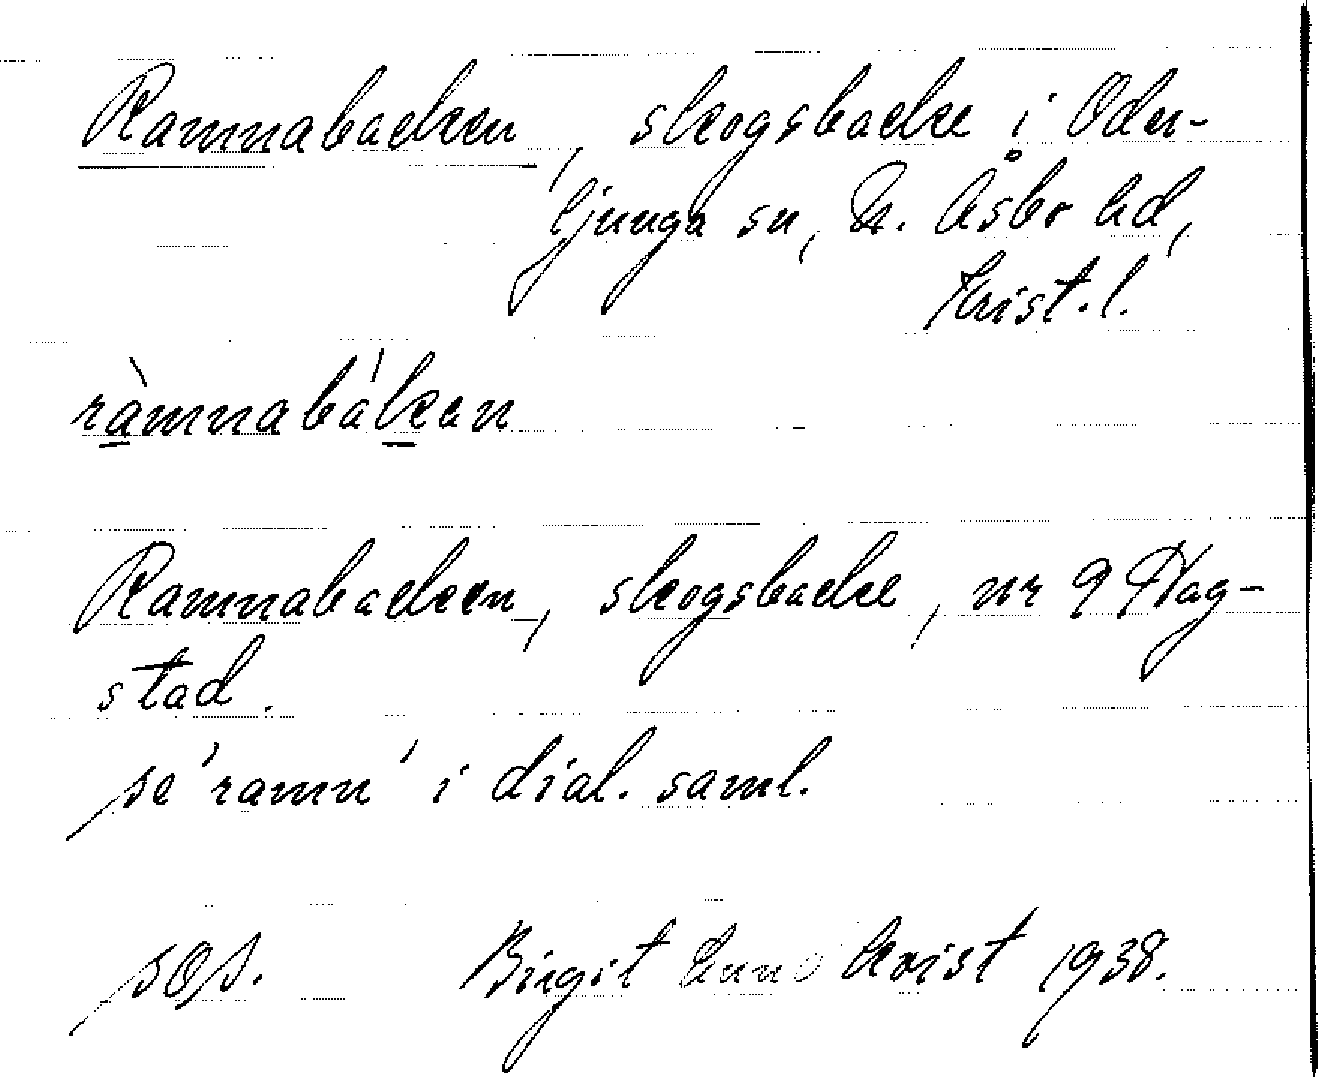 Ramnabacken, skogsbacke i Oder-
ljunga sn, N. Åsbo hd,
Krist.l.
ràmnabákan
Ramnabacken, skogsbacke, nr 9 Hag-
stad.
se 'ramn' i dial. saml.
sOs. Birgit Kvist 1938.